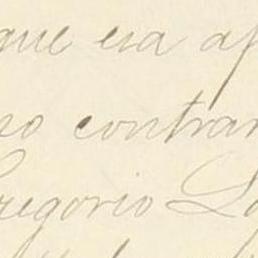 que era ap
so contrar
Gregorio Lo